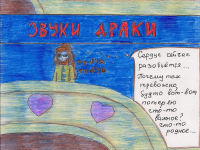 ЗВУКИ ДРАКИ
Сердце сейчас
разобьётся...
Почему так
тревожно,
будто вот-вот
потеряю
что-то
важное?
что-то
родное...